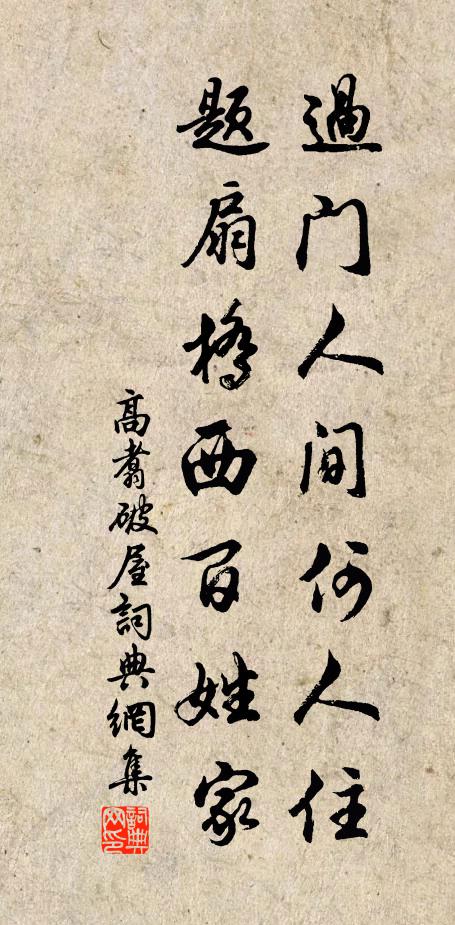 過門人間何人住
題扇橋西百姓家
高翥破屋詞典網集
詞典網印